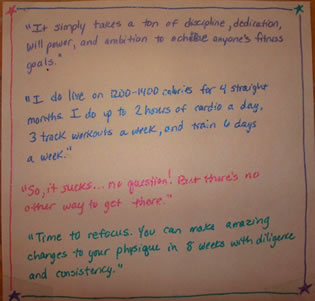 "It simply takes a ton of discipline, dedication,
will power, and ambition to achieve anyone's fitness
goals."
"I do live on 1200-1400 calories for 4 straight
months I do up to 2 hours of cardio a day,
3 track workouts a week, and train 6 days
a week."
"So, it sucks... no question! But there's no
other way to get there."
"Time to refocus. You can make amazing
changes to your physique in 8 weeks with diligence
and consistency."